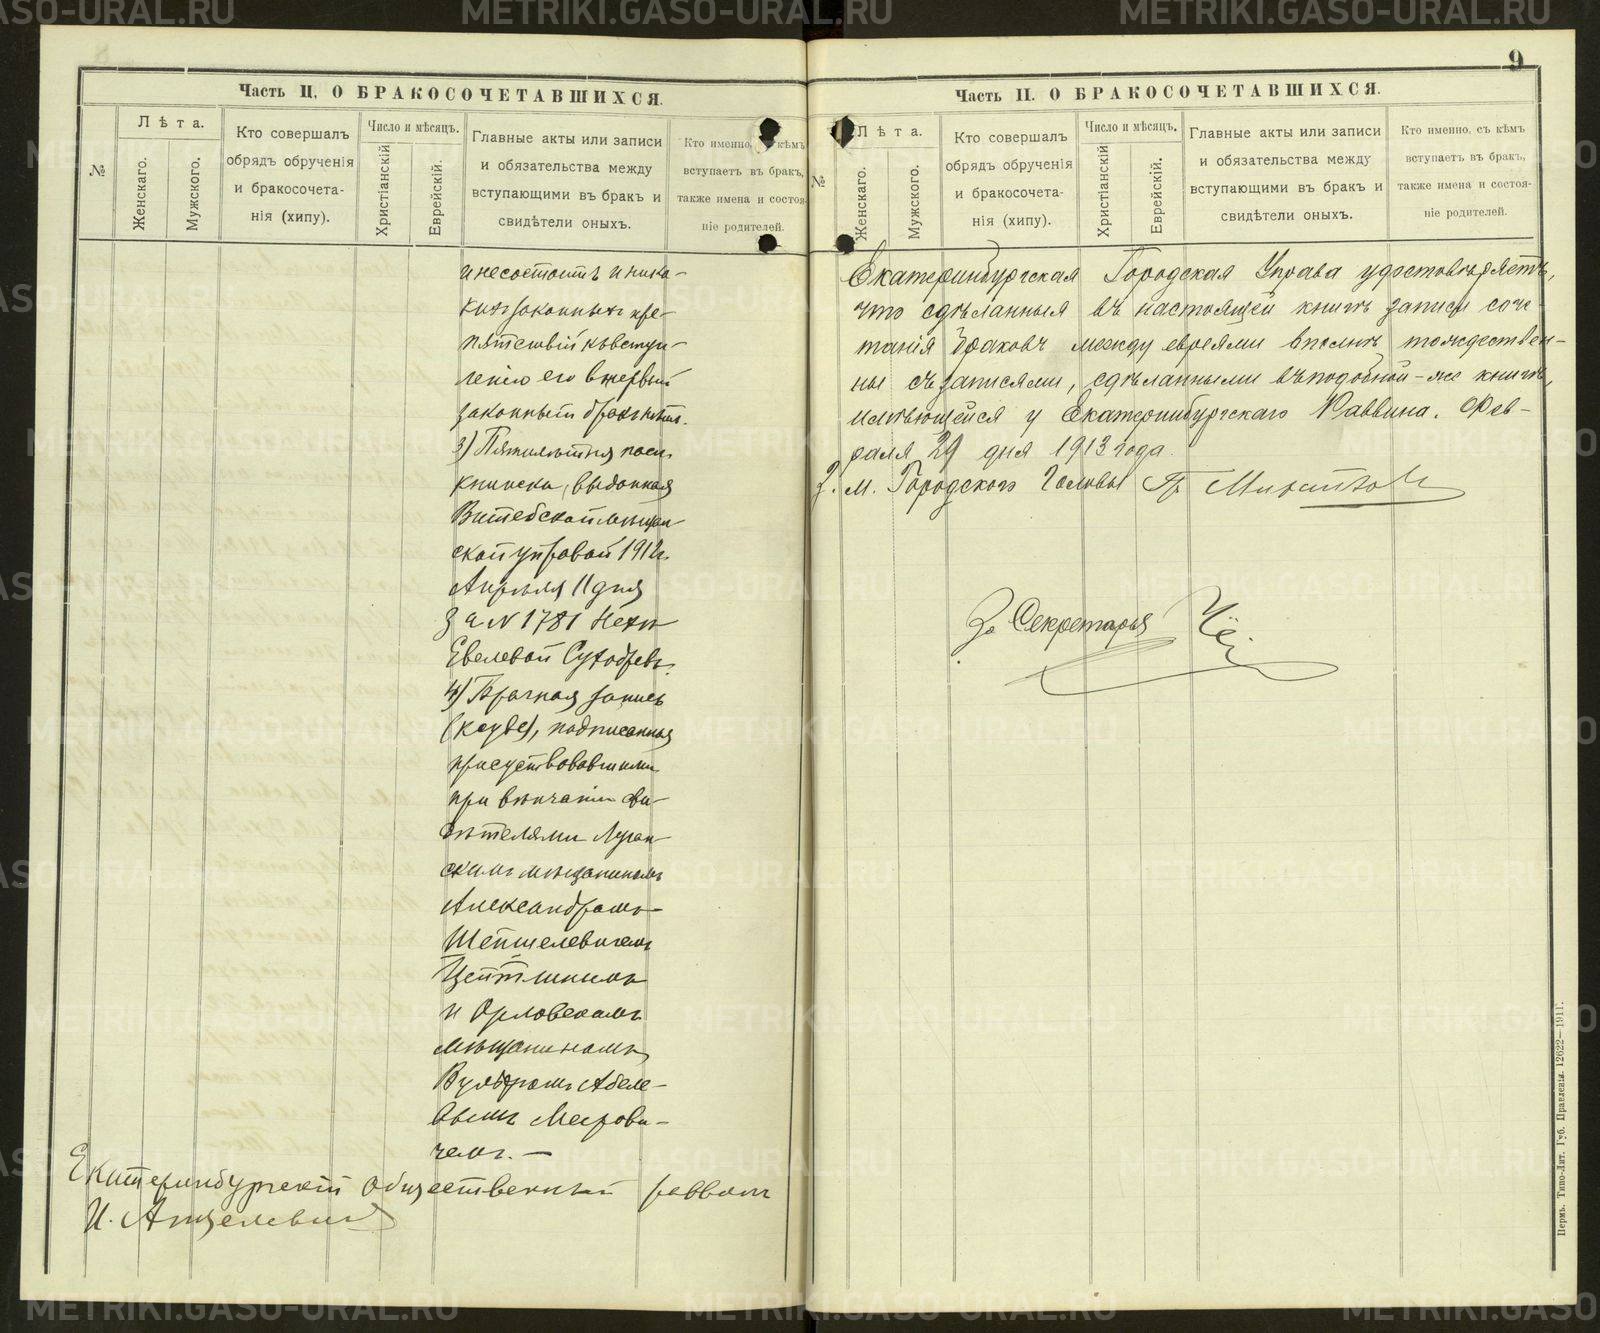 Часть II. О БРАКОСОЧЕТАВШИХСЯ.
№
Лѣта.
Женскаго.
Мужского.
Кто совершалъ
обрядъ обрученія
и бракосочета-
нія (хипу).
Число и мѣсяцъ.
Христіанскій
Еврейскій.
Главные акты или записи
и обязательства между
вступающими въ бракъ и
свидѣтели оныхъ.
Кто именно, съ кѣмъ
вступаетъ въ бракъ,
также имена и состоя-
ніе родителей.
и несостоитъ и ника-
кихъ законныхъ пре-
пятствій къ всту-
пленію его в первый
законный бракъ нѣтъ.
3) Пятилѣтняя пасп.
книжка, выданная
Витебской мѣщан-
ской управой 1912 г.
Апрѣля 11 дня
За N 1781 Нехѣ
Евелевой
4) Брачная запись
подписанная
присутствовавшими
при вѣнчаніи сви-
дѣтелями Луган-
скимъ мѣщаниномъ
Александромъ
Шепшелевичемъ
Цейтлинымъ
и Орловскимъ
мѣщаниномъ
Вульфомъ Абеле-
вымъ Меерови-
чемъ. —
Екатеринбургскій общественный раввинъ
И. Анцелевичъ
9
Часть II. О БРАКОСОЧЕТАВШИХСЯ.
№
Лѣта.
Женскаго.
Мужского.
Кто совершалъ
обрядъ обрученія
и бракосочета-
нія (хипу).
Число и мѣсяцъ.
Христіанскій
Еврейскій.
Главные акты или записи
и обязательства между
вступающими въ бракъ и
свидѣтели оныхъ.
Кто именно, съ кѣмъ
вступаетъ въ бракъ,
также имена и состоя-
ніе родителей.
Екатеринбургская Городская Управа удостовѣряетъ,
что сдѣланныя въ настоящей книгѣ записи соче-
танія браковъ между евреями вполнѣ тождествен-
ны съ записями, сдѣланными въ подобной-же книгѣ,
имѣющейся у Екатеринбургскаго Раввина. Фев-
раля дня 1913 года.
З. м. Городского Головы
За Секретаря
Пермь. Типо-Лит. Губ. Правленія. 12622—1911г.
METRIKI.GASO-URAL.RU